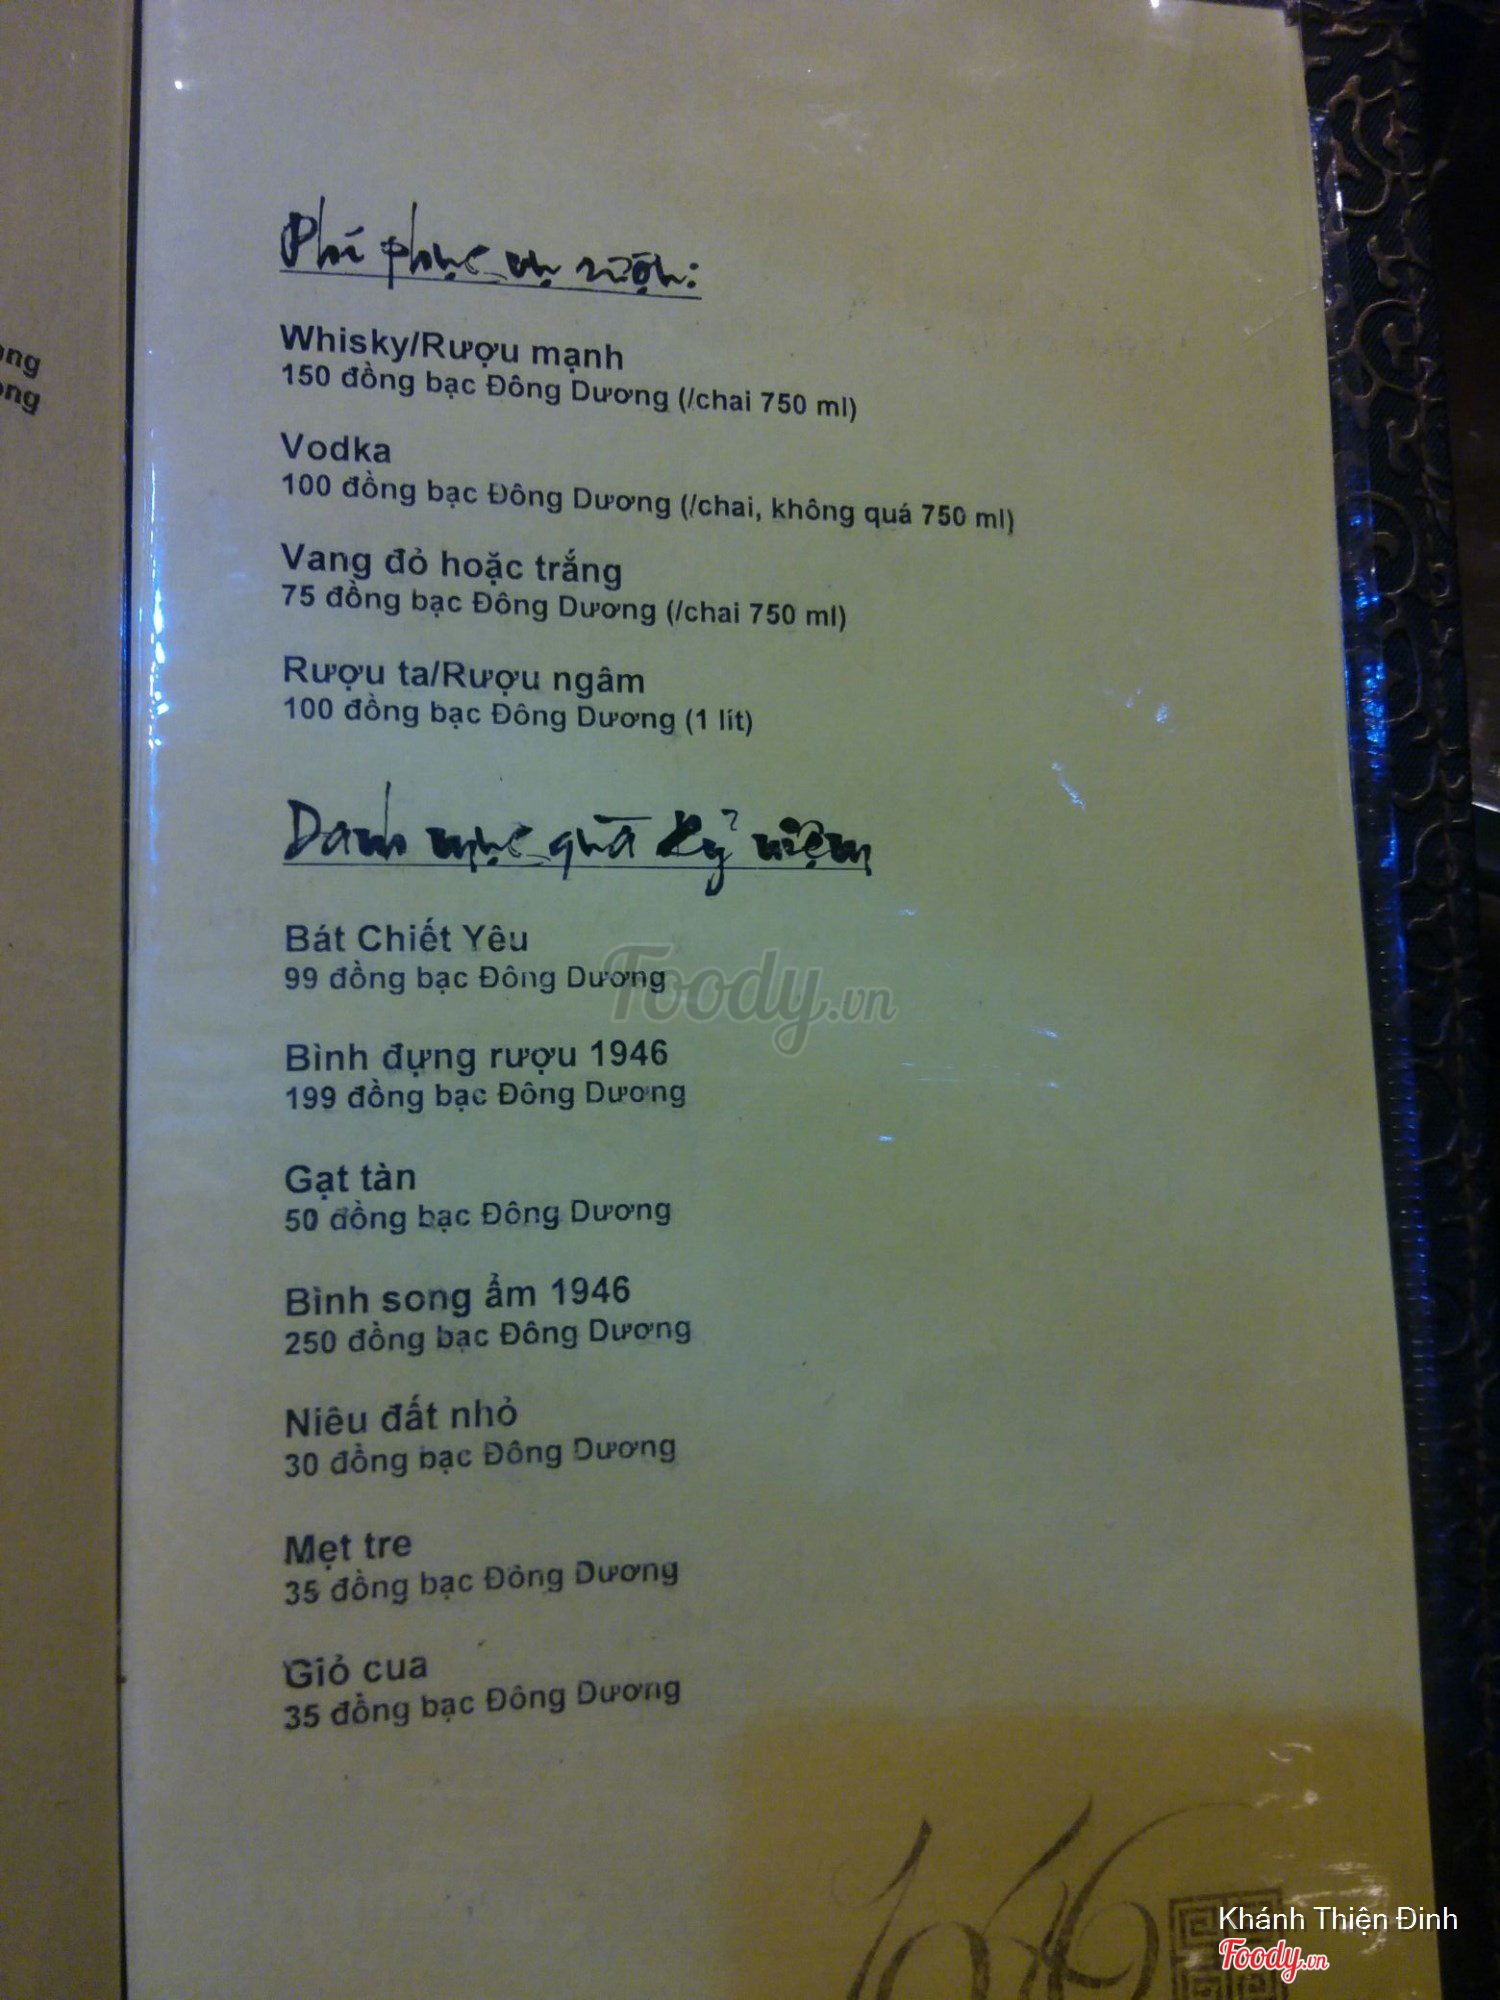 ong
ong
Phí phục vụ rượu:
Whisky/Rượu mạnh
150 đồng bạc Đông Dương (/chai 750 ml)
Vodka
100 đồng bạc Đông Dương (/chai, không quá 750 ml)
Vang đỏ hoặc trắng
75 đồng bạc Đông Dương (/chai 750 ml)
Rượu ta/Rượu ngâm
100 đồng bạc Đông Dương (1 lít)
Danh mục quà kỷ niệm
Bát Chiết Yêu
99 đồng bạc Đông Dương
Foody.vn
Bình đựng rượu 1946
199 đồng bạc Đông Dương
Gạt tàn
50 đồng bạc Đông Dương
Bình song ẩm 1946
250 đồng bạc Đông Dương
Niêu đất nhỏ
30 đồng bạc Đông Dương
Mẹt tre
35 đồng bạc Đông Dương
Giỏ cua
35 đồng bạc Đông Dương
1946
Khánh Thiện Đinh
Foody.vn